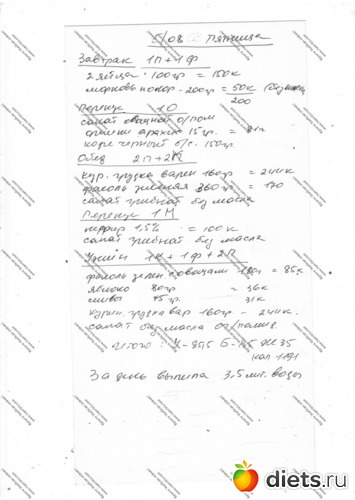 5/08 Пятница
Завтрак 1П+1Ф
2 яйца · 100гр = 150к
морковь по кор. - 200гр = 50к
200
Перекус 1О
салат овощной о/пом
орешки арахис 15гр. = 81к
кофе черный б/с. 150гр.
Обед 2П+2
кур. грудка варен 160гр = 244к
фасоль зеленая 360гр = 170
салат грибной без масла
Перекус 1М
кефир 1,5% = 100к
салат грибной без масла
Ужин +1Ф+2П
фасоль зелен. с овощами = 85к
яблоко 80гр = 36к
сливы 75гр. 31к
курин. грудка вар 160гр - 244к.
салат без масла ог/помид.
Итого: У-85,5 Б- Ж 35
кал 1191
За день выпила 3,5 лит. воды
diets.ru